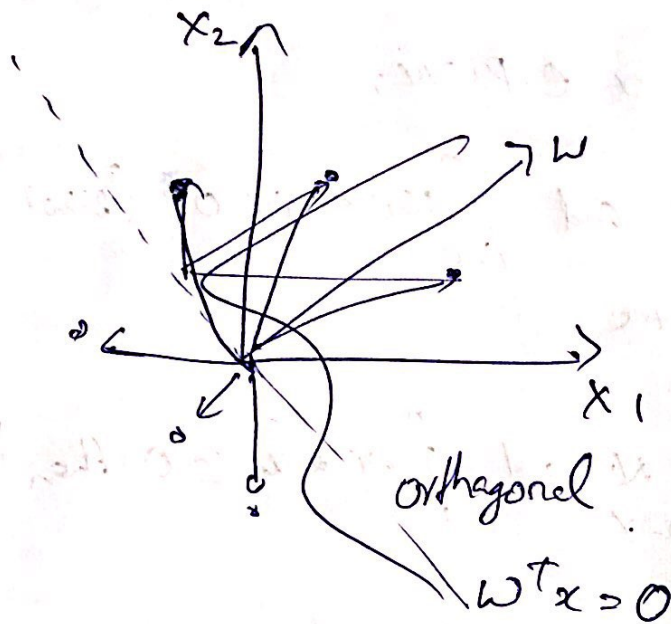 X2
W
X1
orthagonal
W^T x = 0